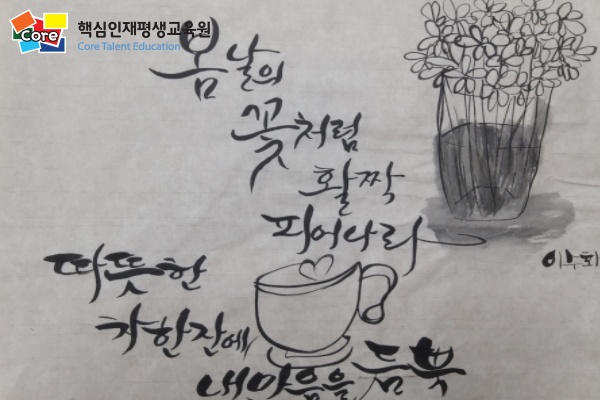 Core
핵심인재평생교육원
Core Talent Education
봄날의
꽃처럼
활짝
피어나리
따뜻한
차한잔에
내마음을 듬뿍